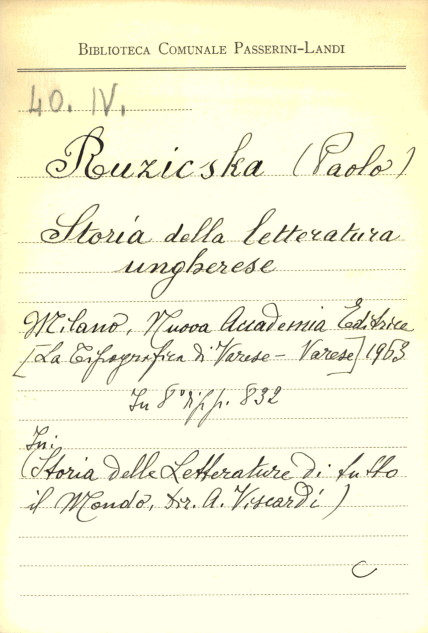 BIBLIOTECA COMUNALE PASSERINI-LANDI
40. IV.
Ruzicska (Paolo)
Storia della letteratura
ungherese
Milano, Nuova Accademia Editrice
[La Tipografica di Varese - Varese] 1963
In 8° di pp. 832
In:
(Storia delle Letterature di tutto
il Mondo, dir. A. Viscardi)
C